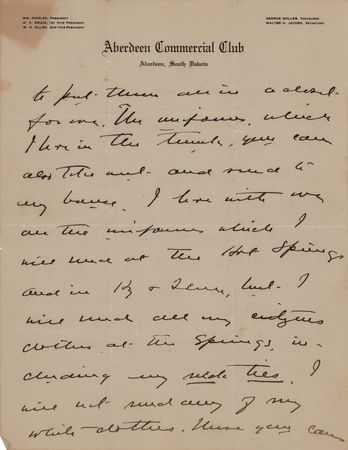 WM. HIDLEY, PRESIDENT
W. C. ALLEN, 2ND VICE PRESIDENT
GEORGE SHILER, TREASURER
WALTER G. JACOBS, SECRETARY
Aberdeen Commercial Club
Aberdeen, South Dakota
to put them all in a closet
for me. The uniforms, which
I have in the trunk, you can
also take out and send to
my house. I have with me
all the uniforms which I
will need at the Hot Springs
and in Ky & Tenn, but I
will need all my citizens
clothes at the Springs, in-
cluding my neck ties. I
will not need any of my
white clothes. Hence you can